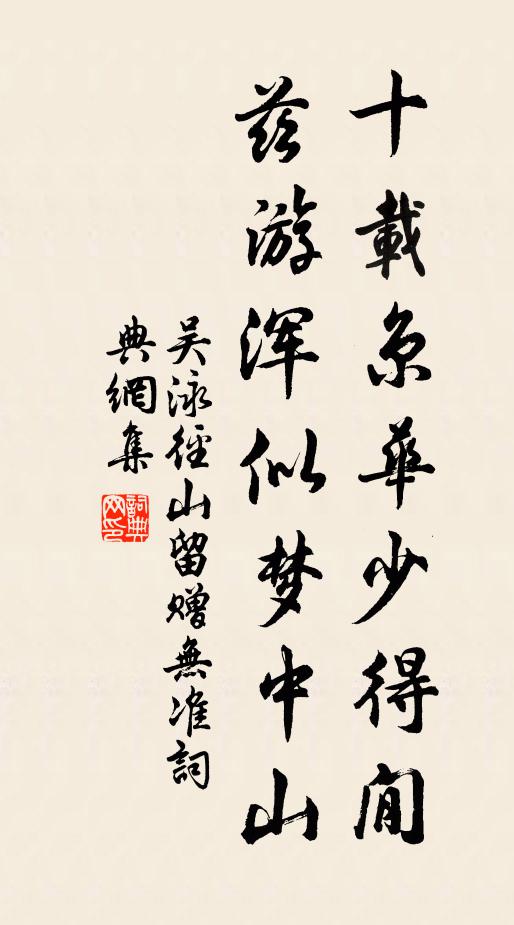 十載京華少得閒
茲游浑似梦中山
吴泳徑山留赠無准詞
典網集
詞典
网印